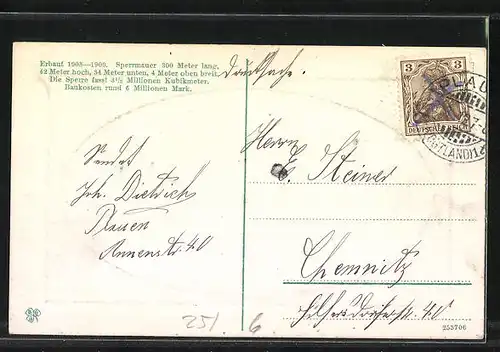 Erbaut 1908—1909. Sperrmauer 300 Meter lang,
42 Meter hoch, 34 Meter unten, 4 Meter oben breit.
Die Sperre fasst 3½ Millionen Kubikmeter.
Baukosten rund 6 Millionen Mark.
Drucksache.
3 3
DEUTSCHES REICH
PLAU
(VOGTLAND)1
Herrn
E. Steiner
Chemnitz
Hilbersdorferstr. 40
Sendet
Joh. Dietrich
Plauen
Annenstr. 40
251. 6
253706